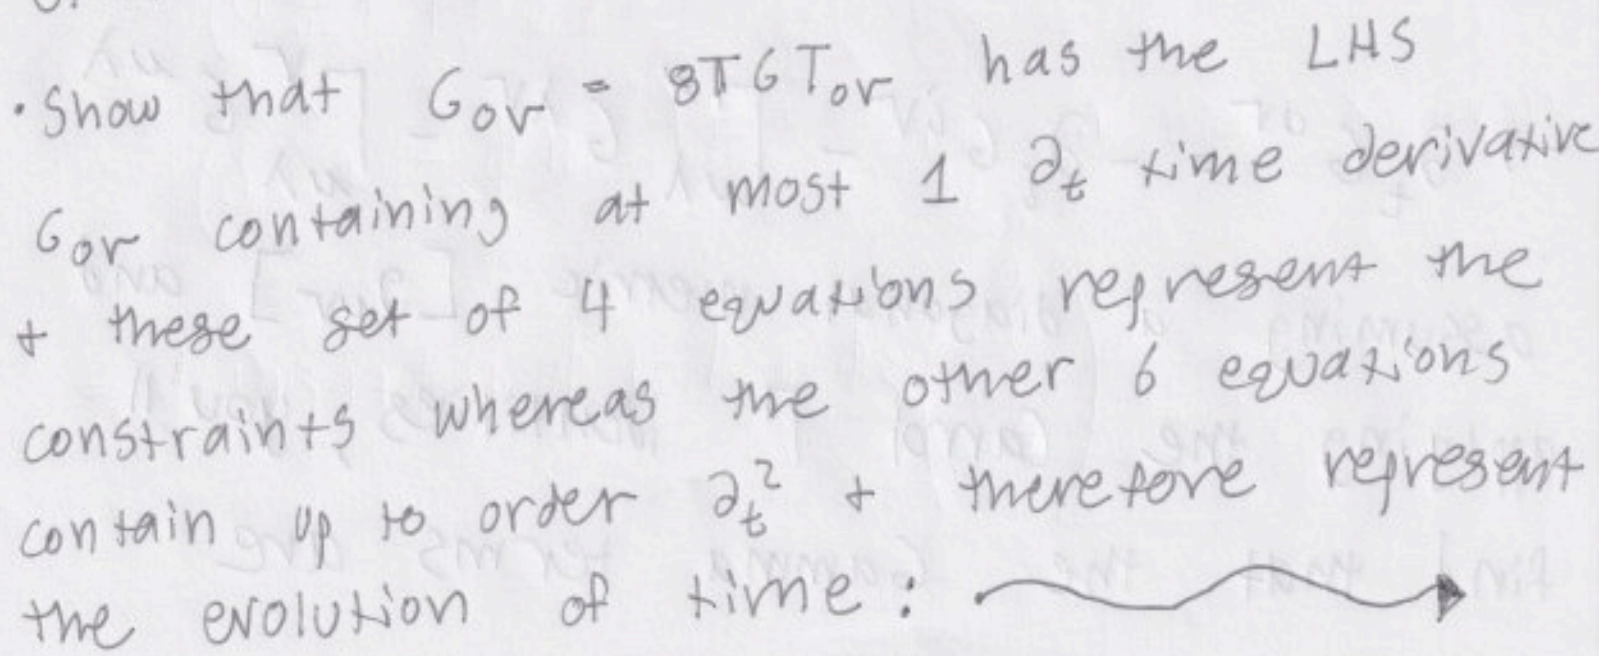 · Show that G₀ᵥ = 8πG T₀ᵥ has the LHS
G₀ᵥ containing at most 1 ∂ₜ time derivative
+ these set of 4 equations represent the
constraints whereas the other 6 equations
contain up to order ∂ₜ² + therefore represent
the evolution of time :